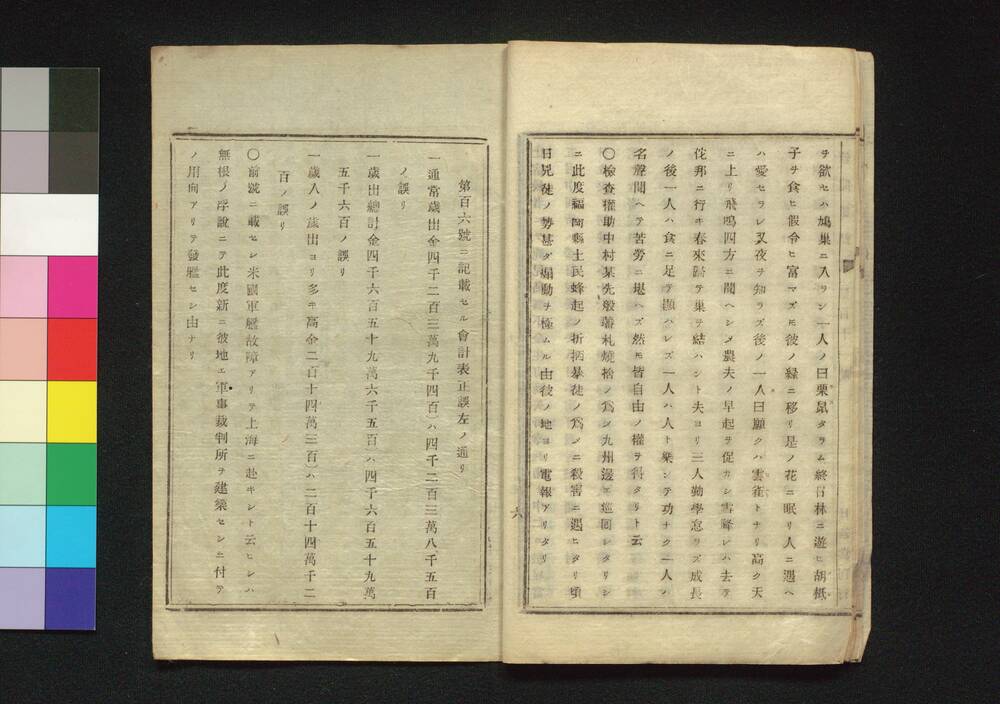 ヲ欲セハ鳩巣ニ入ラン一人ノ曰栗鼠タラム終日林ニ遊ヒ胡桃
子ヲ食ヒ假令ヒ富マズ𪜈彼ノ緑ニ移リ是ノ花ニ眠リ人ニ遇ヘ
ハ愛セラレ又夜ヲ知ラズ後ノ一人曰願クハ雲雀トナリ高ク天
ニ上リ飛鳴四方ニ聞ヘシメ農夫ノ早起ヲ促カシ雪降レハ去テ
他邦ニ行キ春來歸テ巣ヲ結ハント夫ヨリ三人勤學怠ラズ成長
ノ後一人ハ食ニ足テ顯ハレズ一人ハ人ト樂シテ功ナク一人ハ
名聲聞ヘテ苦勞ニ堪ヘズ然𪜈皆自由ノ權ヲ得タリト云
〇檢査權助中村某先般藩札燒捨ノ爲シ九州邊エ巡回シタリシ
ニ此度福岡縣土民蜂起ノ折柄暴徒ノ爲メニ殺害ニ遇ヒタリ頃
日兇徒ノ勢甚ダ煽動ヲ極ムル由彼ノ地ヨリ電報アリタリ
六
第百六號ニ記載セル會計表正誤左ノ通リ
一通常歳出金四千二百三萬九千四百)ハ四千二百三萬八千五百
ノ誤リ
一歳出總計金四千六百五十九萬六千五百ハ四千六百五十九萬
五千六百ノ誤リ
一歳入ノ歳出ヨリ多キ高金二百十四萬三百)ハ二百十四萬千二
百ノ誤リ
〇前號ニ載セシ米國軍艦故障アリテ上海ニ赴キシト云ヒシハ
無根ノ序說ニテ此度新ニ彼地エ軍事裁判所ヲ建築セシニ付テ
ノ用向アリテ發艦セシ由ナリ